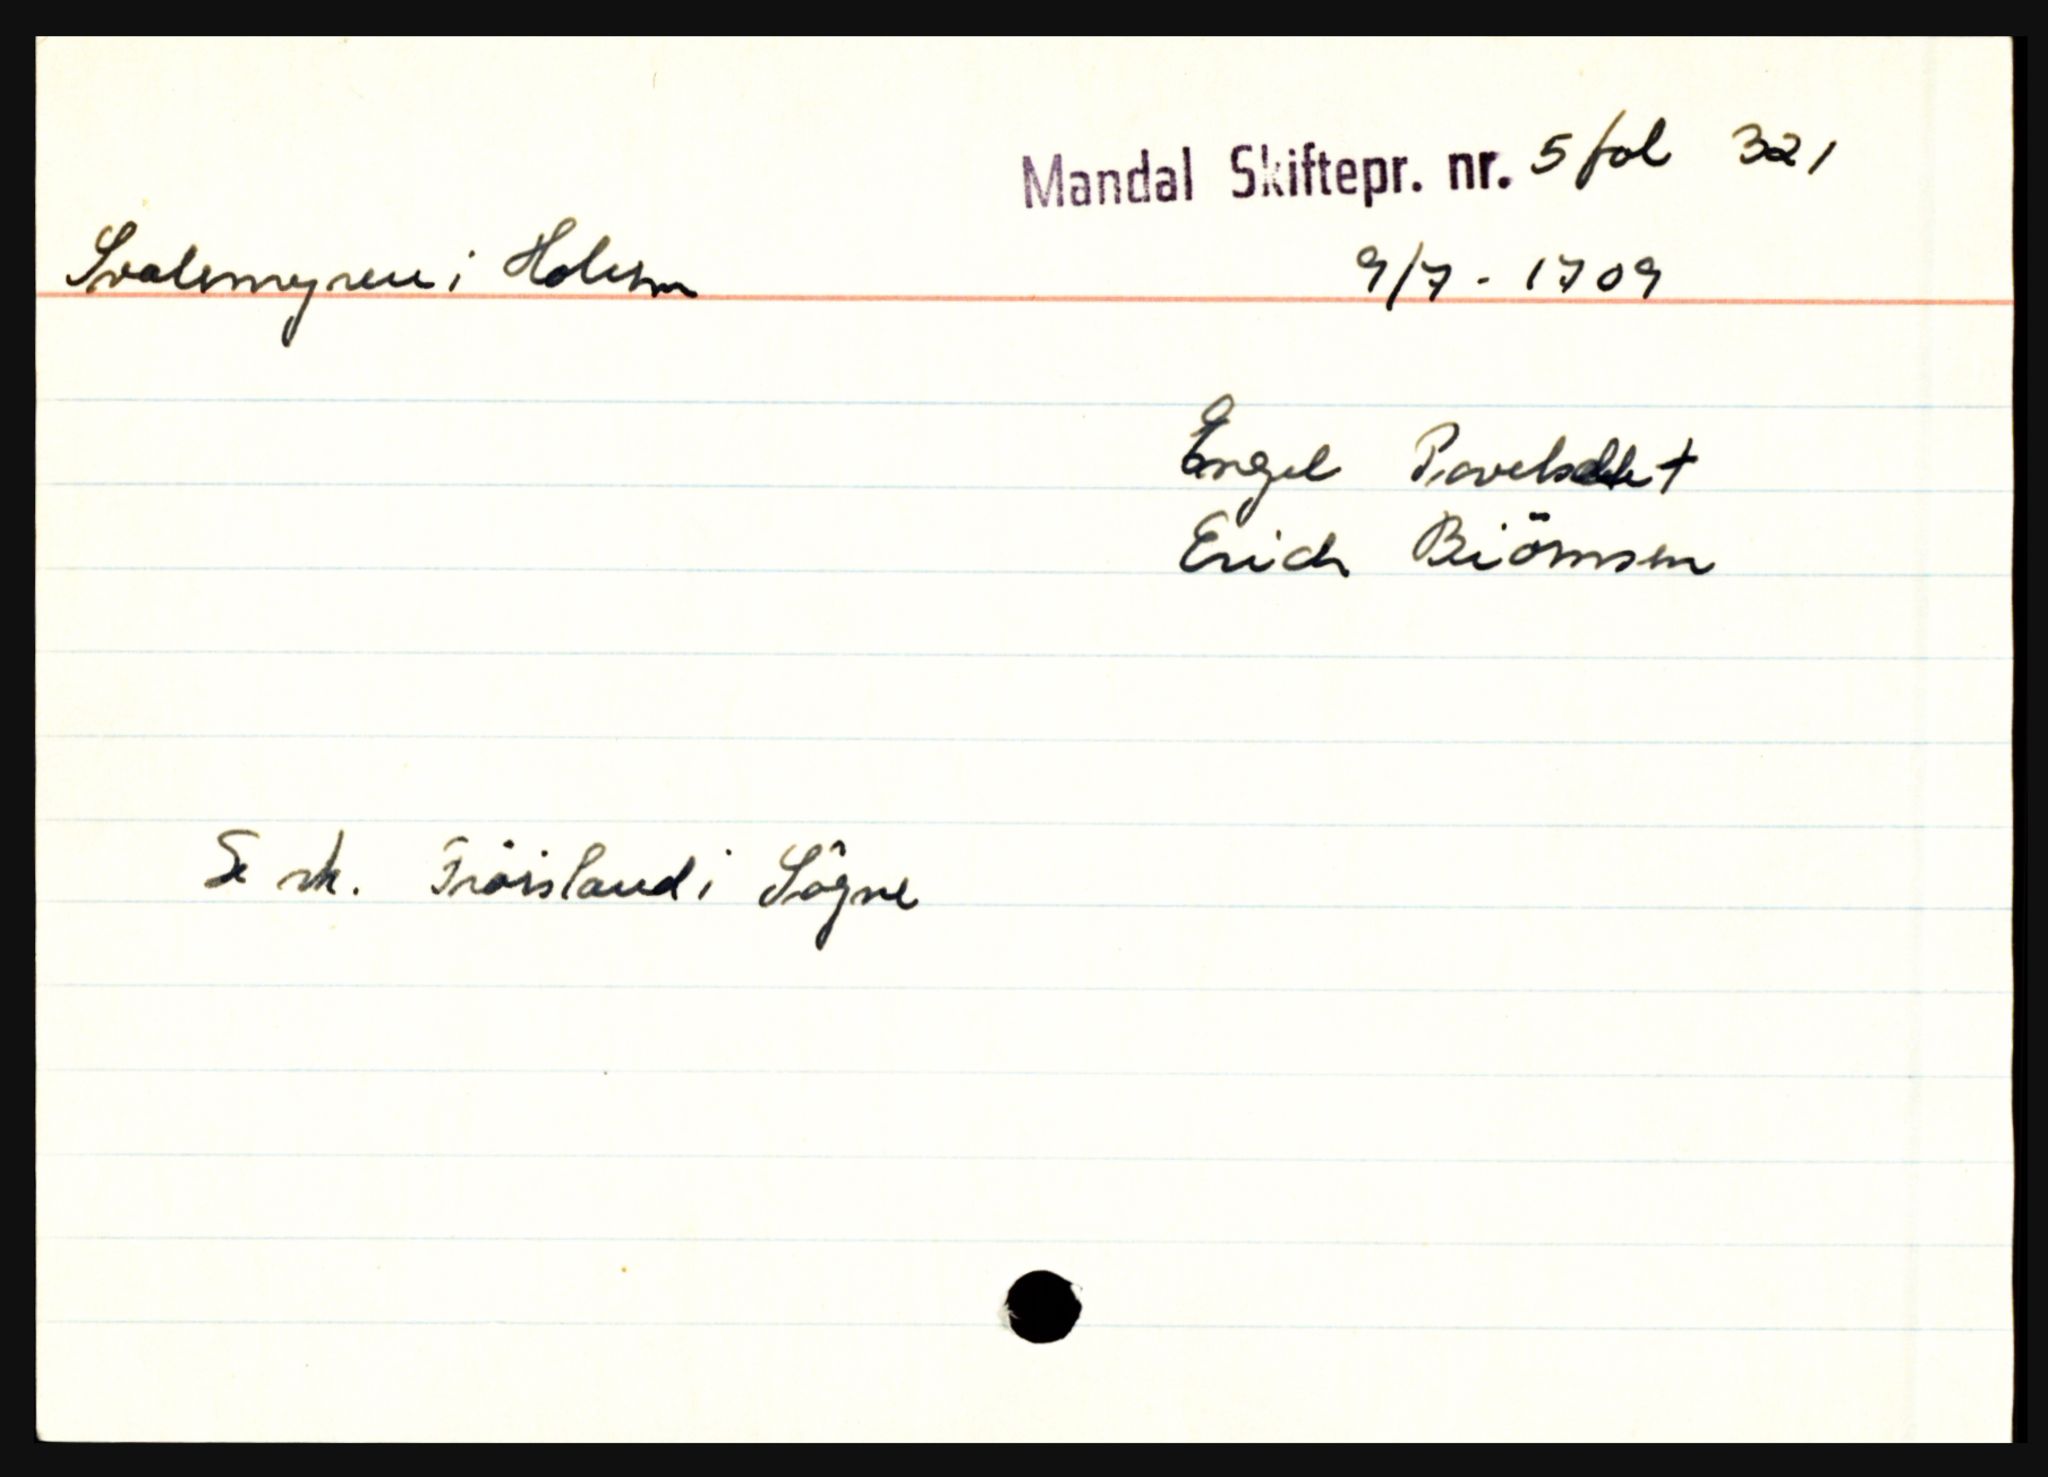 Mandal Skiftepr. nr. 5 fol 321
Svalemyren i Holum
9/7 - 1709
Engel Povelsdtr †
Erich Biörnsen
Se sk. Fröisland i Sögne